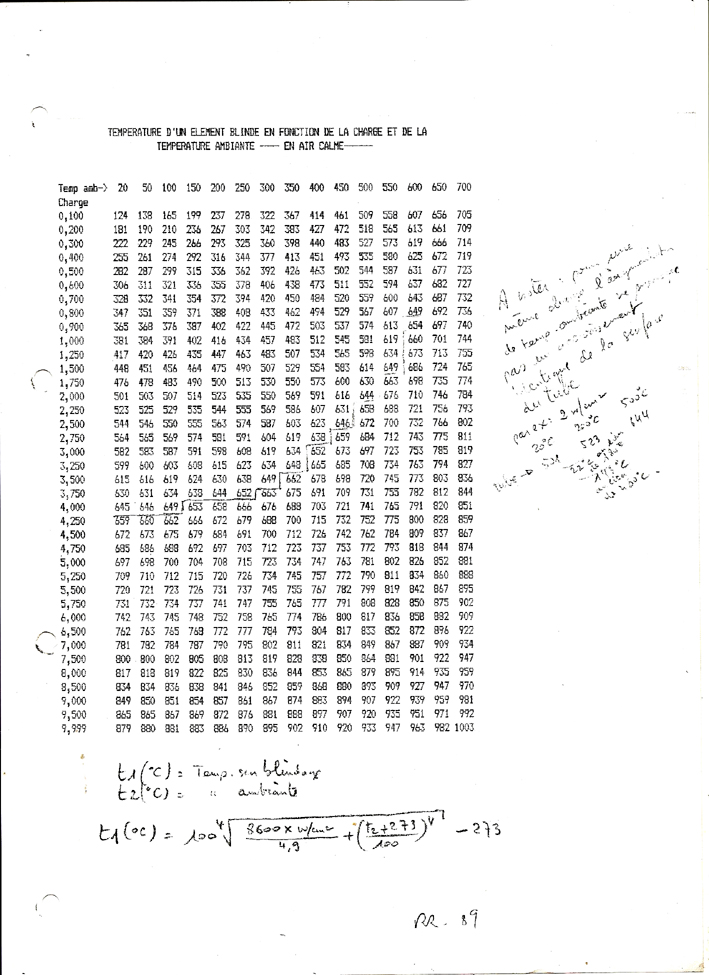 TEMPERATURE D'UN ELEMENT BLINDE EN FONCTION DE LA CHARGE ET DE LA
TEMPERATURE AMBIANTE ---- EN AIR CALME------
Temp amb-> 20 50 100 150 200 250 300 350 400 450 500 550 600 650 700
Charge
0,100 124 138 165 199 237 278 322 367 414 461 509 558 607 656 705
0,200 181 190 210 236 267 303 342 383 427 472 518 565 613 661 709
0,300 222 229 245 266 293 325 360 398 440 483 527 573 619 666 714
0,400 255 261 274 292 316 344 377 413 451 493 535 580 625 672 719
0,500 282 287 299 315 336 362 392 426 463 502 544 587 631 677 723
0,600 306 311 321 336 355 378 406 438 473 511 552 594 637 682 727
0,700 328 332 341 354 372 394 420 450 484 520 559 600 643 687 732
0,800 347 351 359 371 388 408 433 462 494 529 567 607 649 692 736
0,900 365 368 376 387 402 422 445 472 503 537 574 613 654 697 740
1,000 381 384 391 402 416 434 457 483 512 545 581 619 660 701 744
1,250 417 420 426 435 447 463 483 507 534 565 598 634 673 713 755
1,500 448 451 456 464 475 490 507 529 554 583 614 649 686 724 765
1,750 476 478 483 490 500 513 530 550 573 600 630 663 698 735 774
2,000 501 503 507 514 523 535 550 569 591 616 644 676 710 746 784
2,250 523 525 529 535 544 555 569 586 607 631 658 688 721 756 793
2,500 544 546 550 555 563 574 587 603 623 646 672 700 732 766 802
2,750 564 565 569 574 581 591 604 619 638 659 684 712 743 775 811
3,000 582 583 587 591 598 608 619 634 652 673 697 723 753 785 819
3,250 599 600 603 608 615 623 634 648 665 685 708 734 763 794 827
3,500 615 616 619 624 630 638 649 662 678 698 720 745 773 803 836
3,750 630 631 634 638 644 652 663 675 691 709 731 755 782 812 844
4,000 645 646 649 653 658 666 676 688 703 721 741 765 791 820 851
4,250 659 660 662 666 672 679 688 700 715 732 752 775 800 828 859
4,500 672 673 675 679 684 691 700 712 726 742 762 784 809 837 867
4,750 685 686 688 692 697 703 712 723 737 753 772 793 818 844 874
5,000 697 698 700 704 708 715 723 734 747 763 781 802 826 852 881
5,250 709 710 712 715 720 726 734 745 757 772 790 811 834 860 888
5,500 720 721 723 726 731 737 745 755 767 782 799 819 842 867 895
5,750 731 732 734 737 741 747 755 765 777 791 808 828 850 875 902
6,000 742 743 745 748 752 758 765 774 786 800 817 836 858 882 909
6,500 762 763 765 768 772 777 784 793 804 817 833 852 872 896 922
7,000 781 782 784 787 790 795 802 811 821 834 849 867 887 909 934
7,500 800 800 802 805 808 813 819 828 838 850 864 881 901 922 947
8,000 817 818 819 822 825 830 836 844 853 865 879 895 914 935 959
8,500 834 834 836 838 841 846 852 859 868 880 893 909 927 947 970
9,000 849 850 851 854 857 861 867 874 883 894 907 922 939 959 981
9,500 865 865 867 869 872 876 881 888 897 907 920 935 951 971 992
9,999 879 880 881 883 886 890 895 902 910 920 933 947 963 982 1003
A noter : pour une
même charge l'augmentation
de temp. ambiante ne provoque
pas un accroissement
identique de la surface
du tube
par ex : 2 w/cm²
20°C 200°C 500°C
501 523 644
22°C
143°C
t1(°C) = Temp. sur blindage
t2(°C) = " ambiante
t1(°C) = 100 ⁴√ 8600 x w/cm² / 4,9 + (t2+273 / 100)⁴ - 273
RR. 89